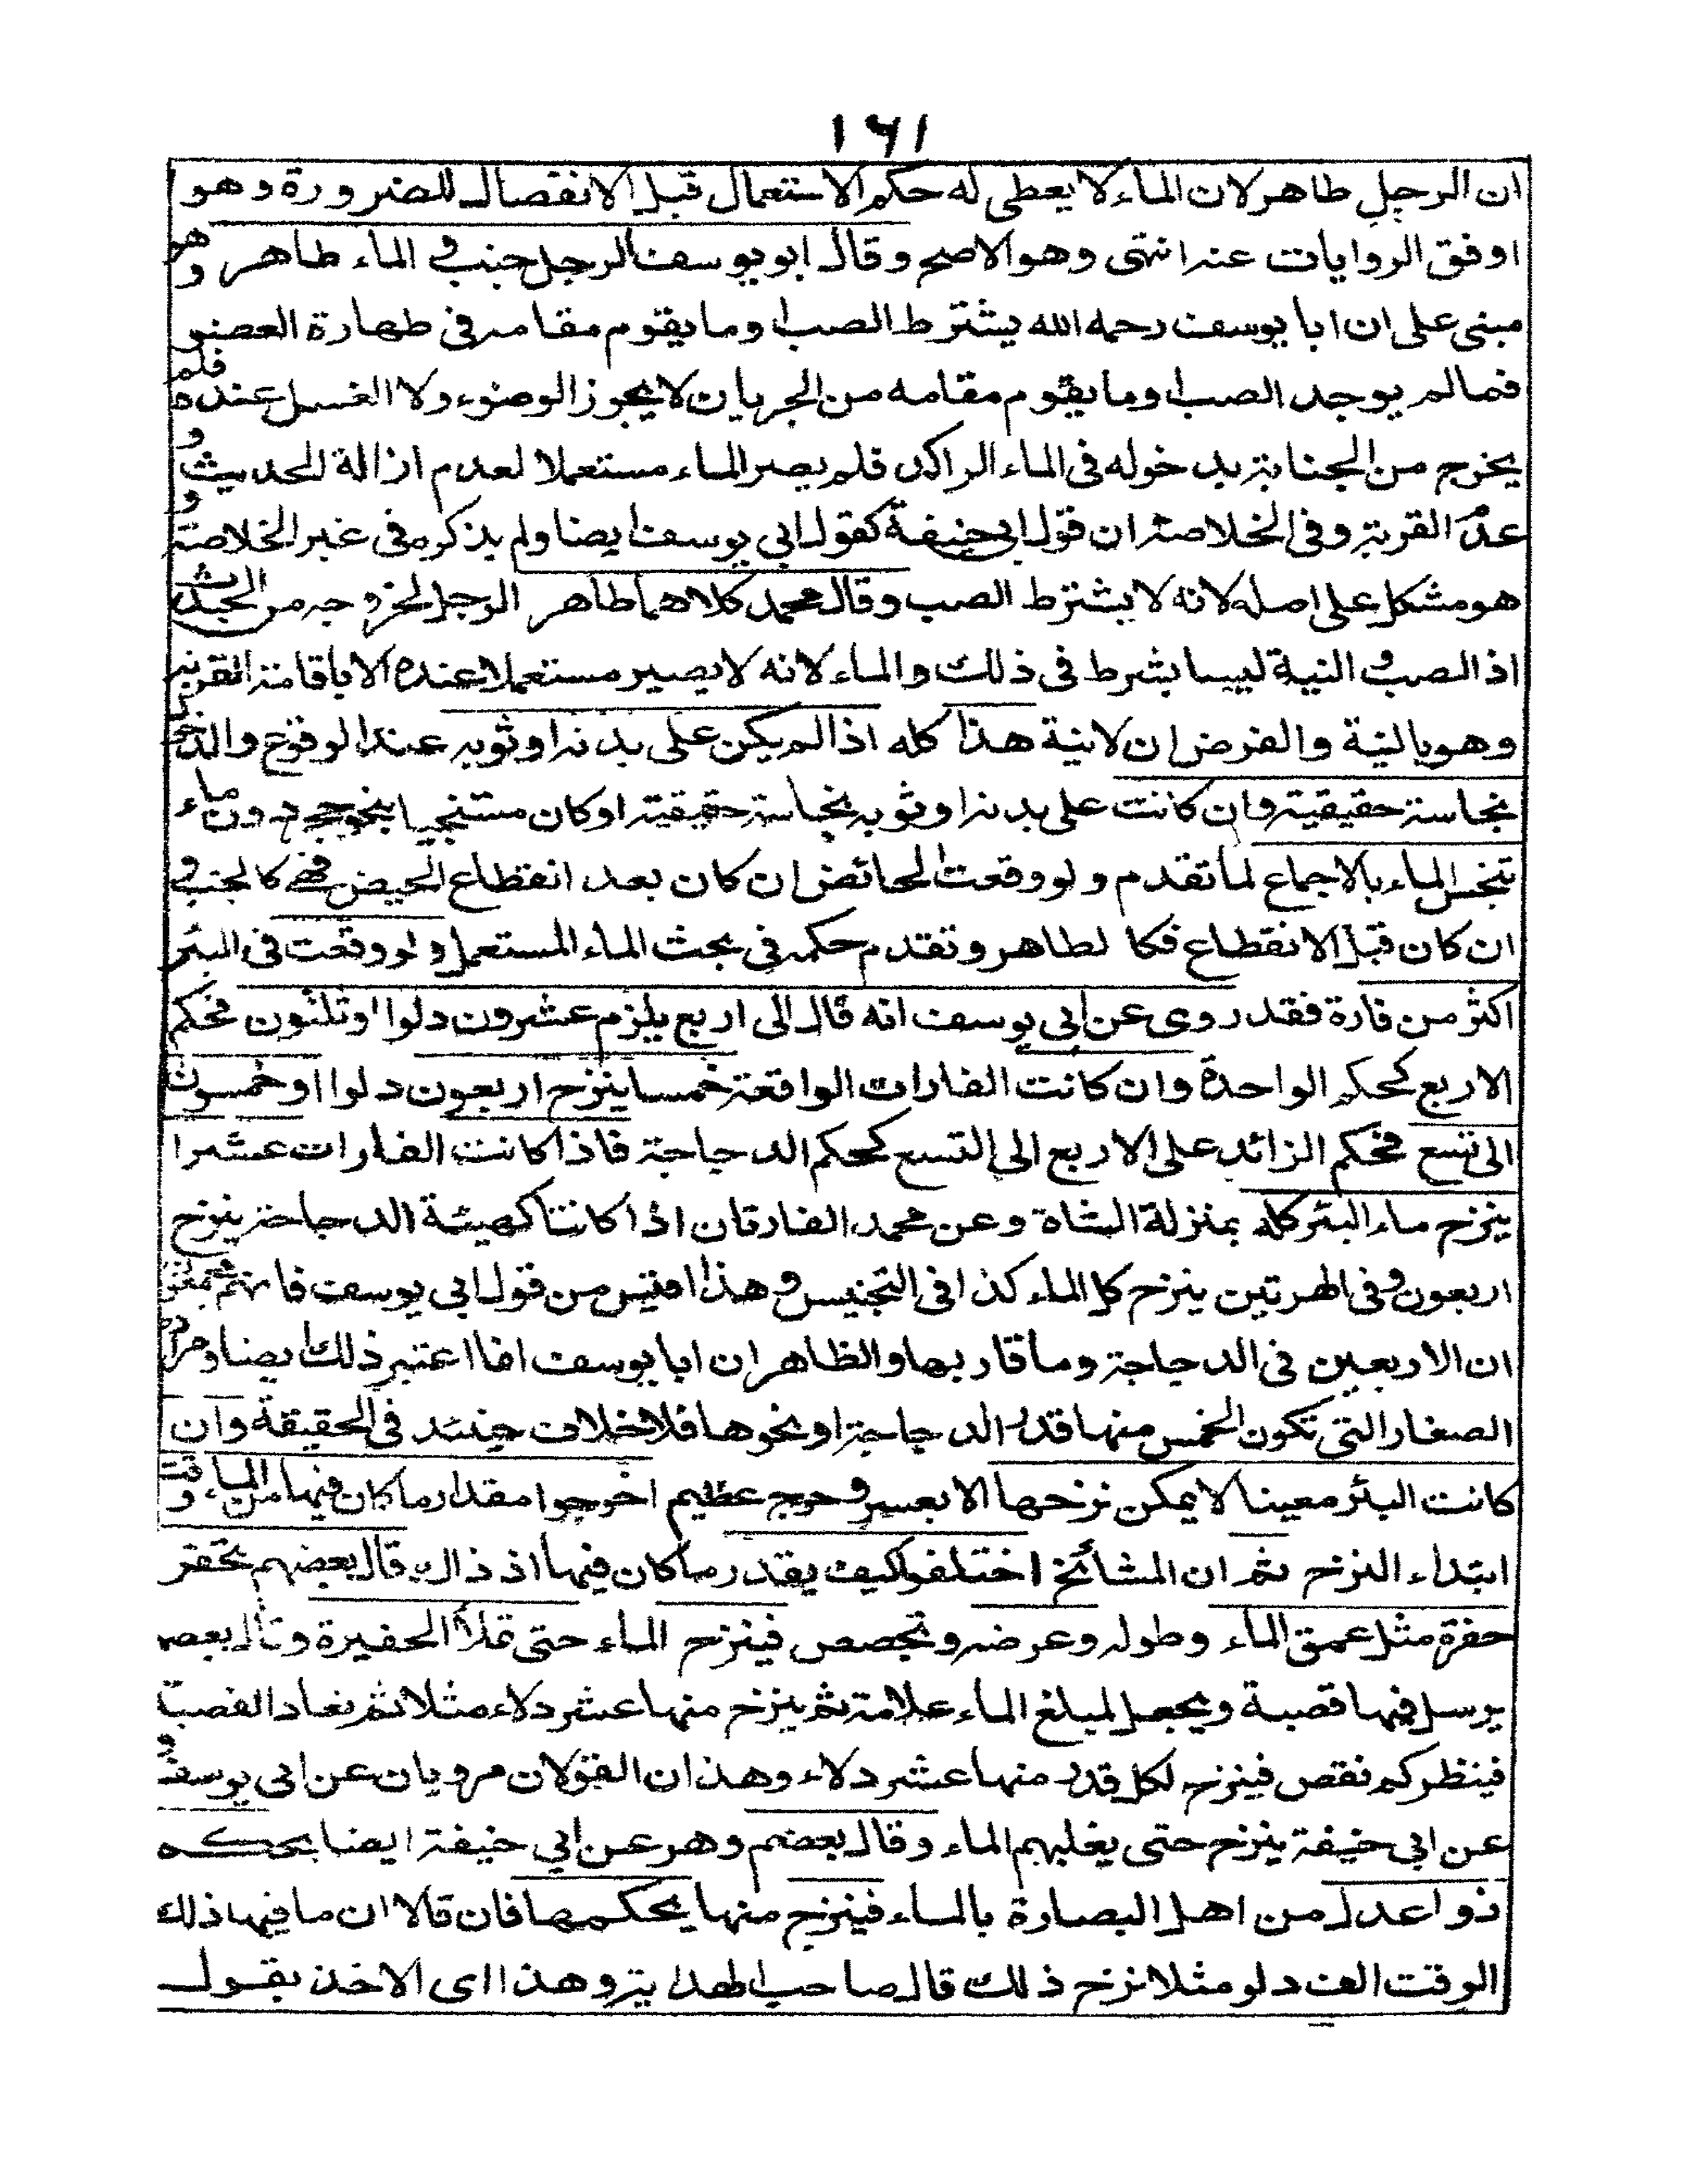 ١٦١
ان الرجل طاهر لان الماء لا يعطى له حكم الاستعمال قبل الانفصال للضرورة وهو
اوفق الروايات عنه انتهى وهو الاصح وقال ابو يوسف الرجل جنب في الماء طاهر وهو
مبنى على ان ابا يوسف رحمه الله يشترط الصب او ما يقوم مقامه فى طهارة العضو
فما لم يوجد الصب او ما يقوم مقامه من الجريان لا يجوز الوضوء ولا الغسل عنده فلم
يخرج من الجنابة بدخوله فى الماء الراكد فلم يصر الماء مستعملا لعدم ازالة الحديث و
عدم القربة وفى الخلاصة ان قول ابى حنيفة كقول ابي يوسف ايضا ولم يذكره فى غير الخلاصة و
هو مشكل على اصله لانه لا يشترط الصب وقال محمد كلاهما طاهر الرجل لخروجه من الحبث
اذ الصب و النية ليسا بشرط فى ذلك والماء لانه لا يصير مستعملا عنده الا باقامة القربة
وهو بالنية والفرض ان لانية هذا كله اذا لم يكن على بدنه او ثوبه عند الوقوع والذكر
نجاسة حقيقية وان كانت على بدنه او ثوبه نجاسة حقيقية او كان مستنجيا بنحو حجر دون ماء
تنجس الماء بالاجماع لما تقدم ولو وقعت الحائض ان كان بعد انقطاع الحيض فهى كالجنب و
ان كان قبل الانقطاع فكا لطاهر وتقدم حكمه في بحث الماء المستعمل ولو وقعت فى البئر
اكثر من فارة فقد روى عن ابى يوسف انه قال الى اربع يلزم عشرون دلوا او ثلثون فحكم
الاربع كحكم الواحدة وان كانت الفارات الواقعة خمسا ينزح اربعون دلوا او خمسون
الى تسع فحكم الزائد على الاربع الى التسع كحكم الدجاجة فاذا كانت الفارات عشرا
ينزح ماء البئر كله بمنزلة الشاة وعن محمد الفارتان اذا كانتا كهيئة الدجاجة ينزح
اربعون وفى الهرتين ينزح كل الماء كذا فى التجنيس وهذا اقيس من قول ابي يوسف فانهم
ان الاربعين فى الدجاجة وما قاربها والظاهر ان ابا يوسف انما اعتبر ذلك ايضا ومراده
الصغار التى تكون الخمس منها قدر الدجاجة او نحوها فلا خلاف حينئذ فى الحقيقة وان
كانت البئر معينا لا يمكن نزحها الا بعسر وحرج عظيم اخرجوا مقدار ما كان فيها من الماء وقت
ابتداء النزح ثم ان المشائخ اختلفوا كيف يقدر ما كان فيها اذ ذاك قال بعضهم تحفر
حفرة مثل عمق الماء وطوله وعرضه وتجصص فينزح الماء حتى تملأ الحفيرة وقال بعضهم
يرسل فيها قصبة ويجعل لمبلغ الماء علامة ثم ينزح منها عشر دلاء مثلا ثم تعاد القصبة
فينظر كم نقص فينزح لكل قدر منها عشر دلاء وهذان القولان مرويان عن ابى يوسف و
عن ابي حنيفة ينزح حتى يغلبهم الماء وقال بعضهم وهو عن ابي حنيفة ايضا بحكمه
ذوا عدل من اهل البصارة بالماء فينزح منها يحكمها فان قالا ان ما فيها ذلك
الوقت الف دلو مثلا نزح ذلك قال صاحب الهداية وهذا اى الاخذ بقول